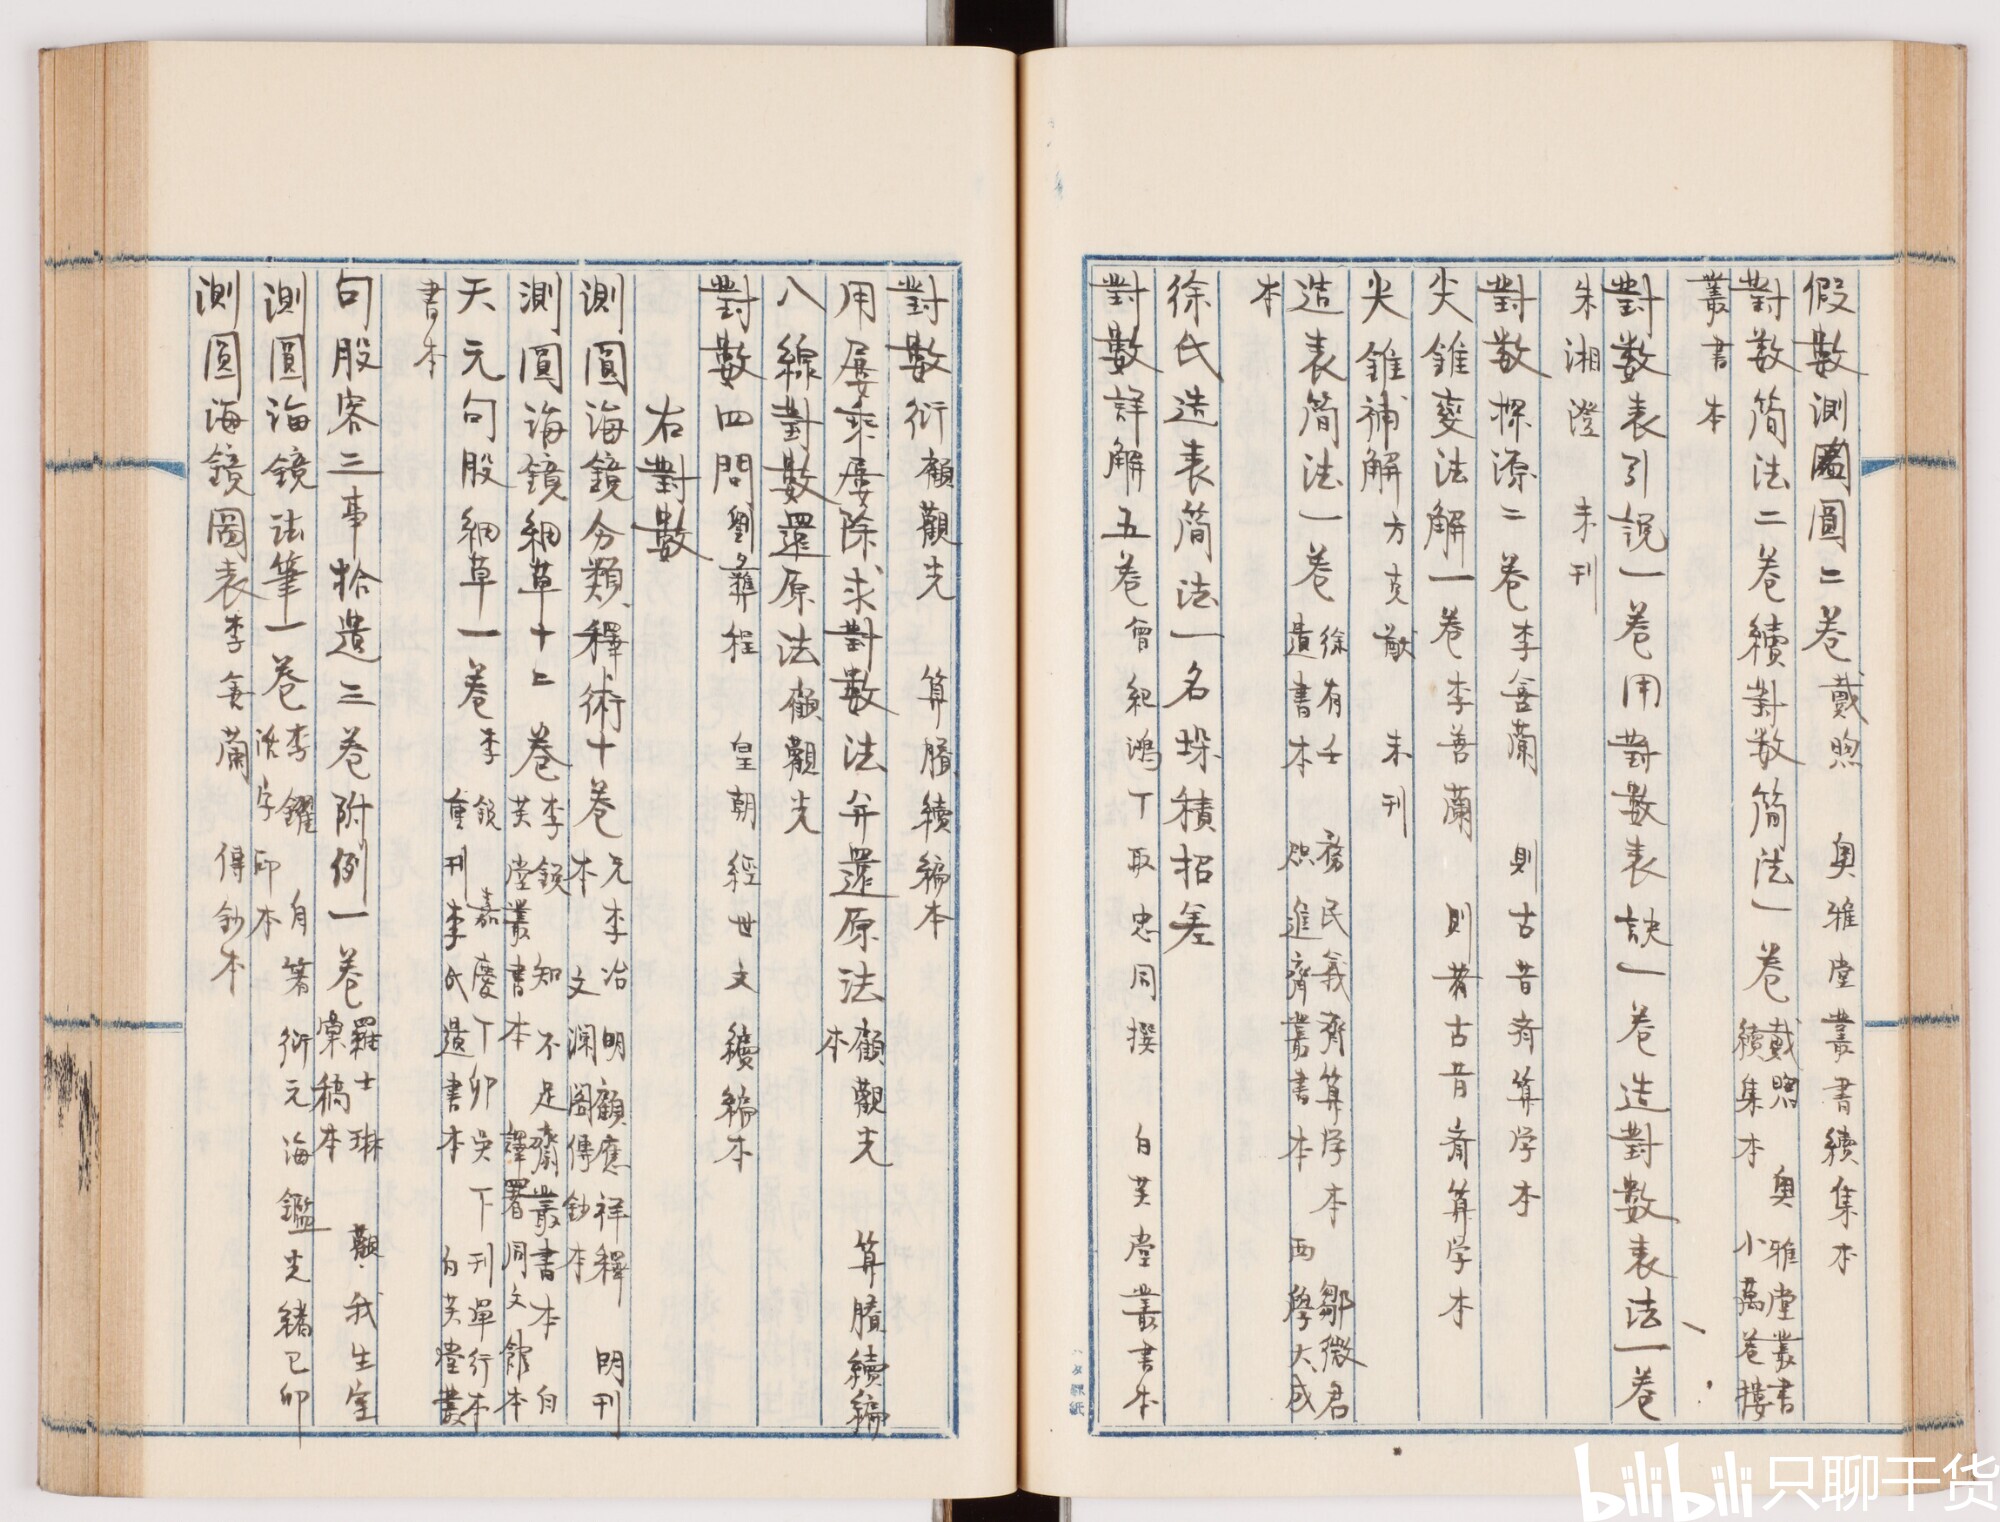 假數測圓二卷戴煦 奧雅堂叢書續集本
對数簡法二卷續對数簡法一卷戴煦 奧雅堂叢書續集本 小萬卷樓
叢書本
對數表引說一卷用對數表訣一卷造對數表法一卷
朱湘澄 未刊
對数探源二卷李善蘭 則古昔斉算学本
尖錐変法解一卷李善蘭 則古昔斉算学本
尖錐補解方克猷 未刊
造表簡法一卷徐有壬 務民義齋算学本 鄒徵君遺書本 烬進齋叢書本 西學大成
本
徐氏造表簡法一名垛積招差
對數詳解五卷曾紀鴻丁取忠同撰 白芙堂叢書本
對數衍顧觀光 算賸續編本
用屢乘屢除求對數法弁還原法顧觀光 算賸續編本
八線對數還原法顧觀光
對數四問劉彝程 皇朝經世文續編本
右對數
測圓海鏡分類釋術十卷元李冶 明顧應祥釋 明刊本 文瀾閣傳鈔本
測圓海鏡細草十二卷李銳 知不足齋叢書本 白芙堂叢書本 譯署同文館本
天元句股細草一卷李銳 嘉慶丁卯吳下刊單行本 重刊李氏遺書本 白芙堂叢
書本
句股容三事拾遺三卷附例一卷羅士琳 觀我生室彙稿本
測圓海鏡法筆一卷李鏐 自箸衍元海鑑光緒己卯活字印本
測圓海鏡圖表李善蘭 傳鈔本
bilibili 只聊干货